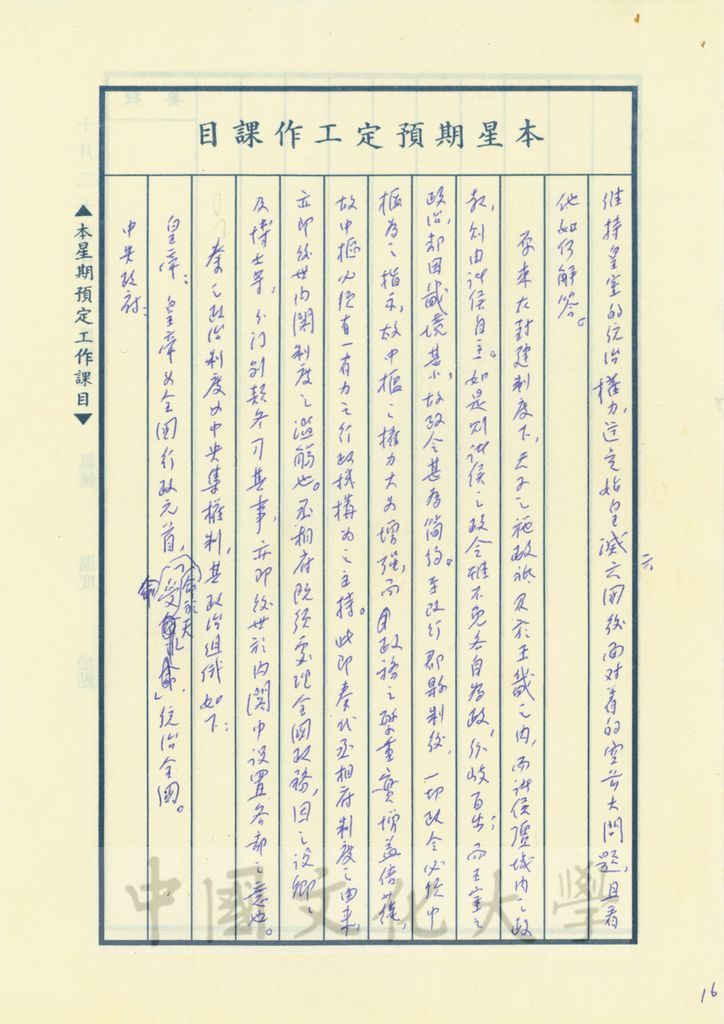 本星期預定工作課目
維持皇室的統治權力,這是始皇滅六國後面對着的空前大問題,且看
他如何解答。
原來在封建制度下,天子之施政祗及於王畿之內,而諸侯疆域內之政
教,則由諸侯自主。如是則諸侯之政令雖不免各自為政,分歧百出;而王室之
政治,却因畿境甚小,故政令甚為簡約。至改行郡縣制後,一切政令必經中
樞為之指示,故中樞之權力大為增強,而政務之繁重實增益倍蓰,
故中樞必須有一有力之行政機構為之主持。此即秦代丞相府制度之由來,
亦即後世內閣制度之濫觴也。丞相府既須處理全國政務,因之設卿之
及博士等,分门別類各司其事,亦即後世於內閣中設置各部之意也。
秦之政治制度為中央集權制,其政治組織如下:
皇帝:皇帝為全國行政元首,「受命於天」,統治全國。
中央政府:
▲本星期預定工作課目▼
中國文化大學
16